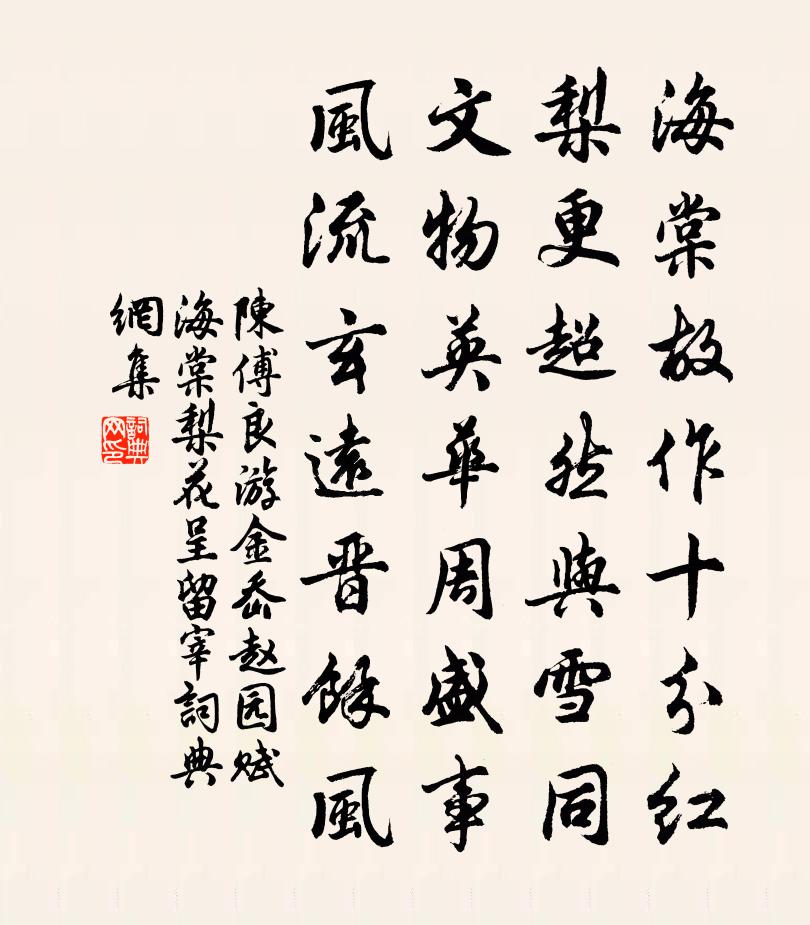 海棠故作十分紅
梨更超然與雪同
文物英華周盛事
風流玄遠晋餘風
陳傅良游金岙赵园赋
海棠梨花呈留宰詞典
網集
詞典
网印